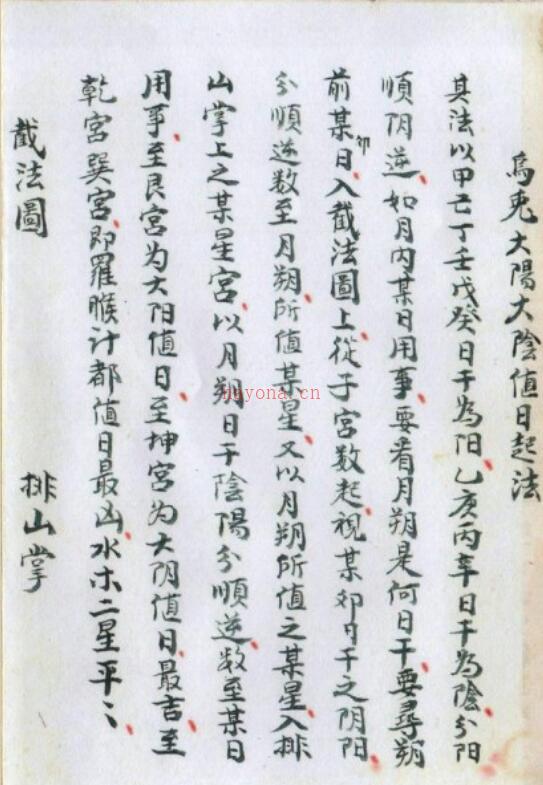 烏兎大陽大陰值日起法
其法以甲己丁壬戊癸日干為阳乙庚丙辛日干為陰分阳
順阴逆如月內某日用事要看月朔是何日干要尋朔
前某卯日入截法圖上從子宮数起視某卯日干之阴阳
分順逆数至月朔所值某星又以月朔所值之某星入排
山掌上之某星宮以月朔日干陰陽分順逆数至某日
用事至艮宮为大阳值日至坤宮为大阴值日最吉至
乾宮巽宮即羅睺計都值日最凶水木二星平〻
截法圖
排山掌
hayona.cn